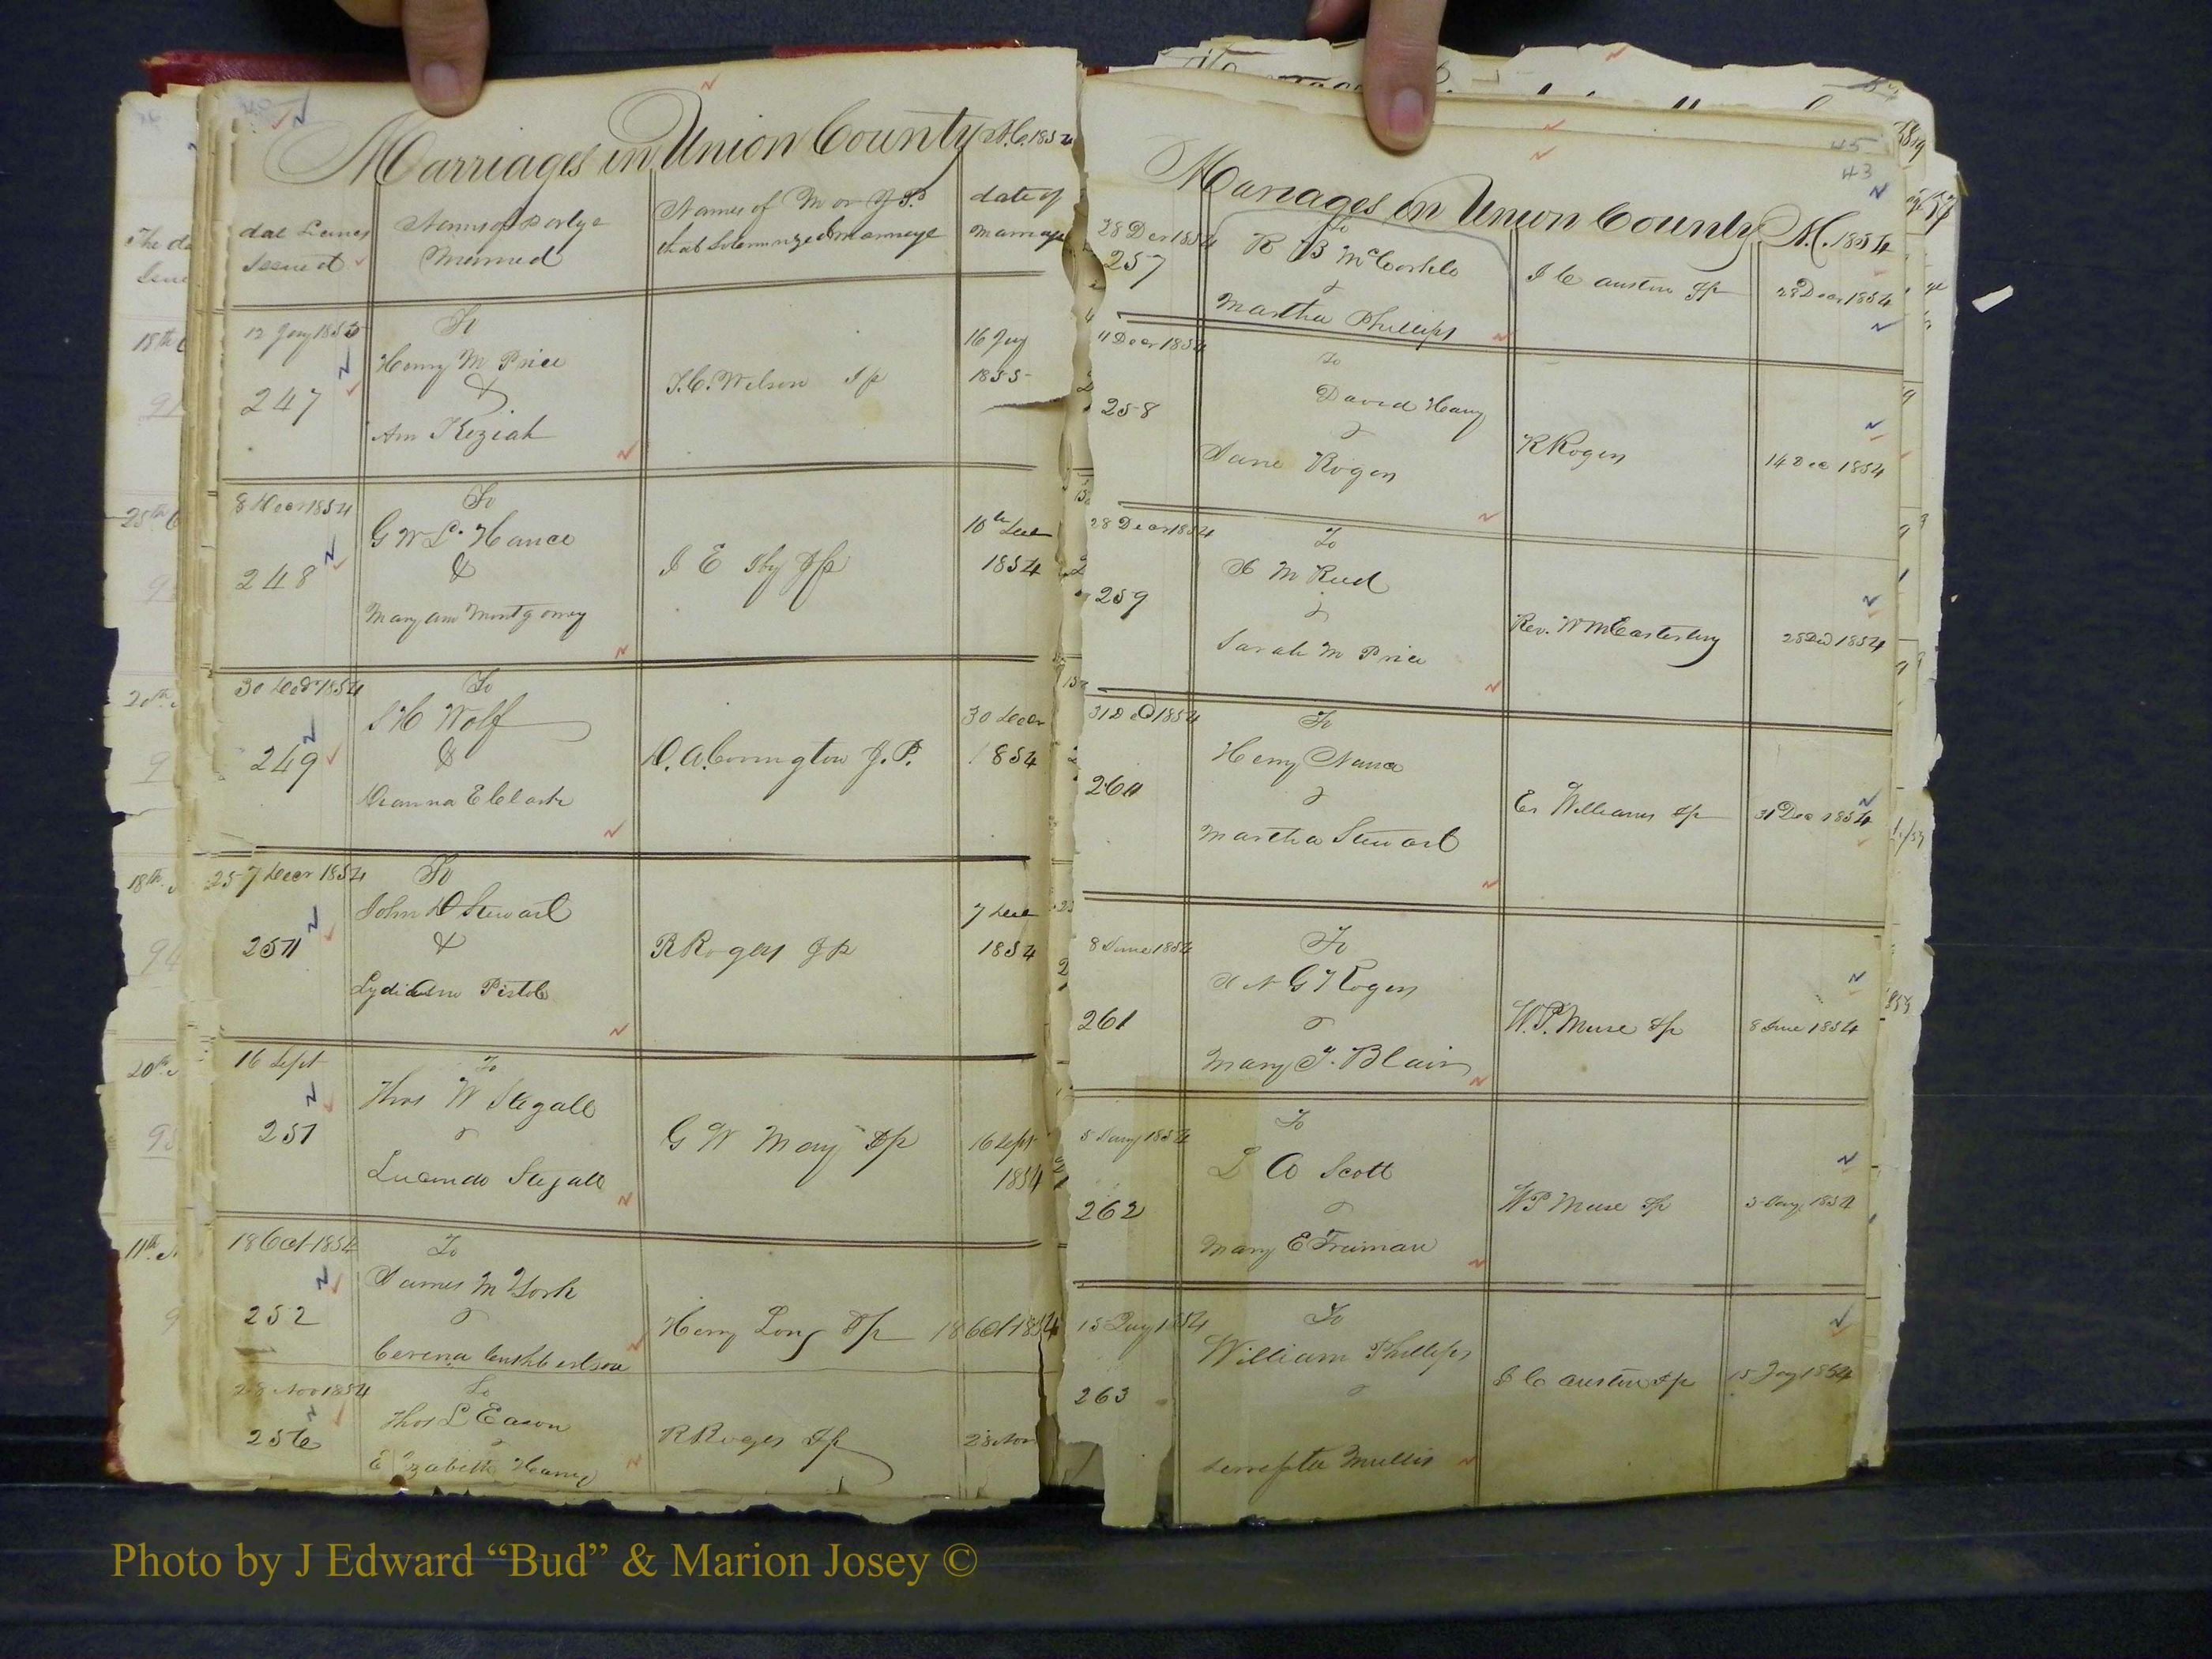 Marriages in Union County N.C. 1854
date Licenes Issued
Names of partys Married
Names of M or J.P. that Solemnized marriage
date of marriage
12 Jay 1855
To
Henry M Price
&
Ann Keziah
247
J.C. Wilson Jp
16 Jay
1855
8 Decr 1854
To
G W L. Hance
&
Mary ann Montgomery
248
J E Jp
10th Dec
1854
30 Decr 1854
To
S H Wolf
&
249
D. A. Covington J.P.
30 Decr
1854
7 Decr 1854
To
John D Stewart
&
Lydia Ann Pistole
R Rogers Jp
7 Dec
1854
16 Sept
To
Thos W Stegall
&
Lucinda Stegall
251
G W May Jp
16 Sept
1854
18 Oct 1854
To
James M York
&
Cerena Cuthbertson
252
Henry Long Jp
18 Oct 1854
28 Nov 1854
To
Thos L Eason
Elizabeth Haney
256
R Rogers Jp
28 Nov
45
43
Marriages in Union County N.C. 1854
28 Decr 1854
To
R B McCorkle
&
Martha Phillips
257
J C Austin Jp
28 Decr 1854
11 Decr 1854
To
David Haney
&
Jane Rogers
258
R Rogers
14 Dec 1854
28 Decr 1854
To
M Reed
&
Sarah M Price
259
Rev. W M Easterling
28 Dec 1854
31 Dec 1854
To
Henry Nance
&
Martha Stewart
260
Ez Williams Jp
31 Dec 1854
8 June 1854
To
N G Rogers
&
Mary J. Blair
261
W. P. Muse Jp
8 June 1854
5 Jany 1854
To
L A Scott
&
Mary E Freeman
262
W P Muse Jp
5 Jany 1854
15 Jay 1854
To
William Phillips
&
Serrepta Mullis
263
J C Austin Jp
15 Jay 1854
Photo by J Edward “Bud” & Marion Josey ©